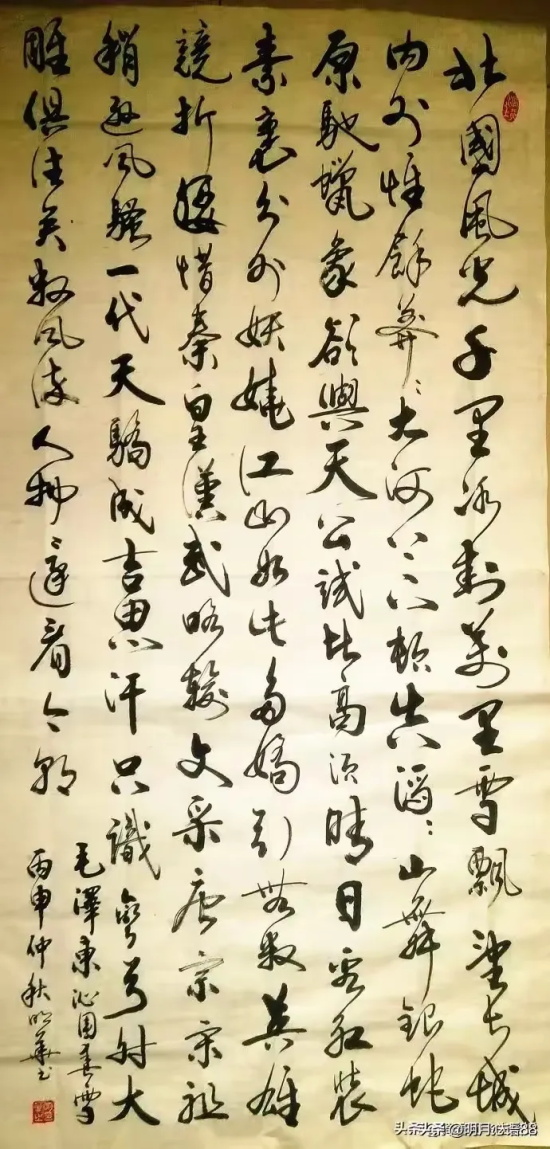 北國風光千里冰封萬里雪飄望長城
内外惟餘莽〻大河上下頓失滔〻山舞銀蛇
原馳蠟象欲與天公試比高須晴日看紅裝
素裹分外妖嬈江山如此多嬌引無數英雄
競折腰惜秦皇漢武略輸文采唐宗宋祖
稍遜風騷一代天驕成吉思汗只識彎弓射大
雕俱往矣數風流人物還看今朝
毛澤東沁園春雪
丙申仲秋明華书
头条@明月88